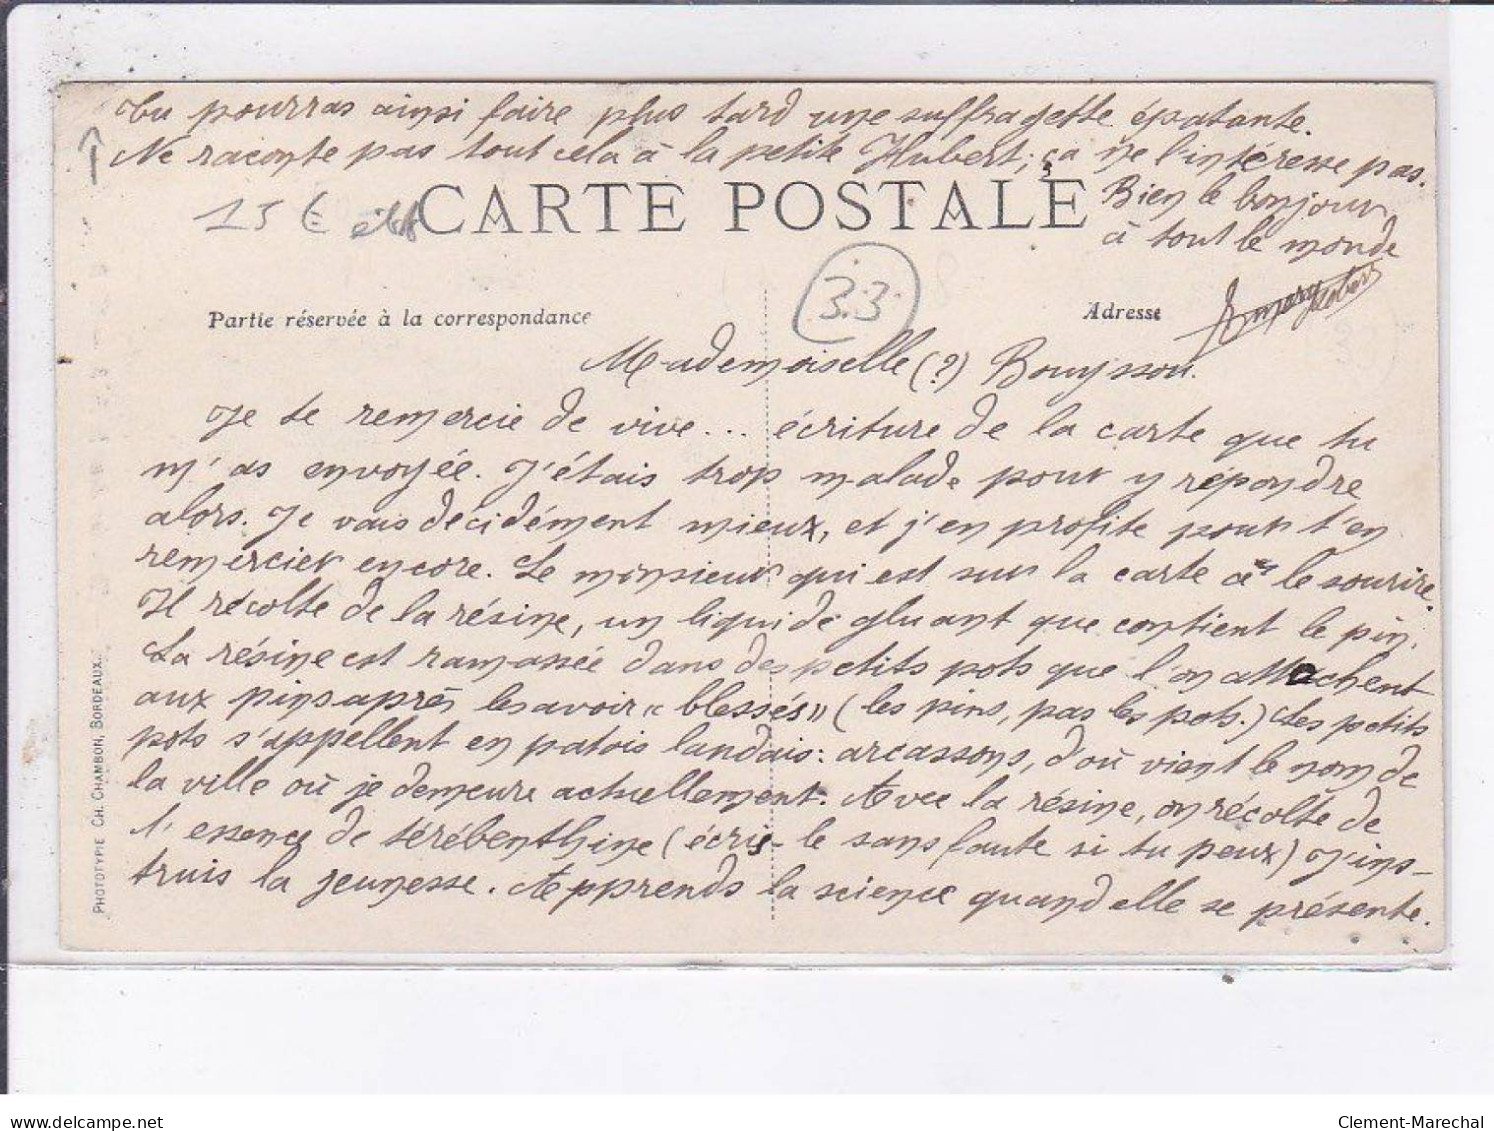 Tu pourras ainsi faire plus tard une suffragette épatante.
Ne raconte pas tout cela à la petite Hubert; ça ne l'intéresse pas.
Bien le bonjour
à tout le monde
15 €
CARTE POSTALE
33
Partie réservée à la correspondance
Adresse
Mademoiselle (?) Bouysson.
Je te remercie de vive... écriture de la carte que tu
m'as envoyée. J'étais trop malade pour y répondre
alors. Je vais décidément mieux, et j'en profite pour t'en
remercier encore. Le monsieur qui est sur la carte a le sourire.
Il récolte de la résine, un liquide gluant que contient le pin.
La résine est ramassée dans des petits pots que l'on attachent
aux pins après les avoir "blessés" (les pins, pas les pots.) Les petits
pots s'appellent en patois landais: arcassons, d'où vient le nom de
la ville où je demeure actuellement. Avec la résine, on récolte de
l'essence de térébenthine (écris-le sans faute si tu peux) J'ins-
truis la jeunesse. Apprends la science quand elle se présente.
PHOTOTYPIE CH. CHAMBON, BORDEAUX.
delcampe.net
Clement-Marechal